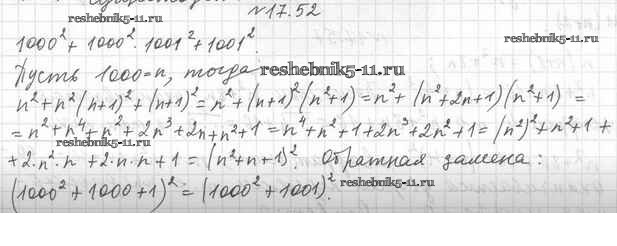 №17.52
reshebnik5-11.ru
1000² + 1000² · 1001² + 1001².
reshebnik5-11.ru
Пусть 1000=n, тогда
reshebnik5-11.ru
n² + n²(n+1)² + (n+1)² = n² + (n+1)²(n²+1) = n² + (n²+2n+1)(n²+1) =
= n² + n⁴ + n² + 2n³ + 2n + n² + 1 = n⁴ + n² + 1 + 2n³ + 2n² + 1 = (n²)² + n² + 1 +
reshebnik5-11.ru
+ 2·n²·n + 2·n·n + 1 = (n²+n+1)². Обратная замена:
(1000² + 1000 + 1)² = (1000² + 1001)².
reshebnik5-11.ru